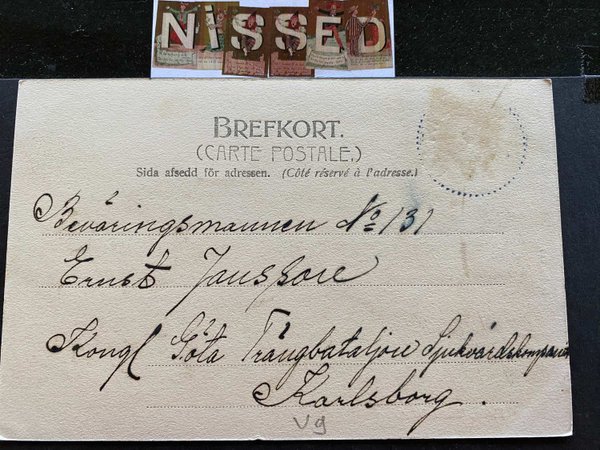 NiSSED
BREFKORT.
(CARTE POSTALE.)
Sida afsedd för adressen. (Côté réservé à l'adresse.)
Beväringsmannen No 131
Ernst Jansson
Kongl Göta Trängbataljon Sjukvårdskompani
Karlsborg.
Vg